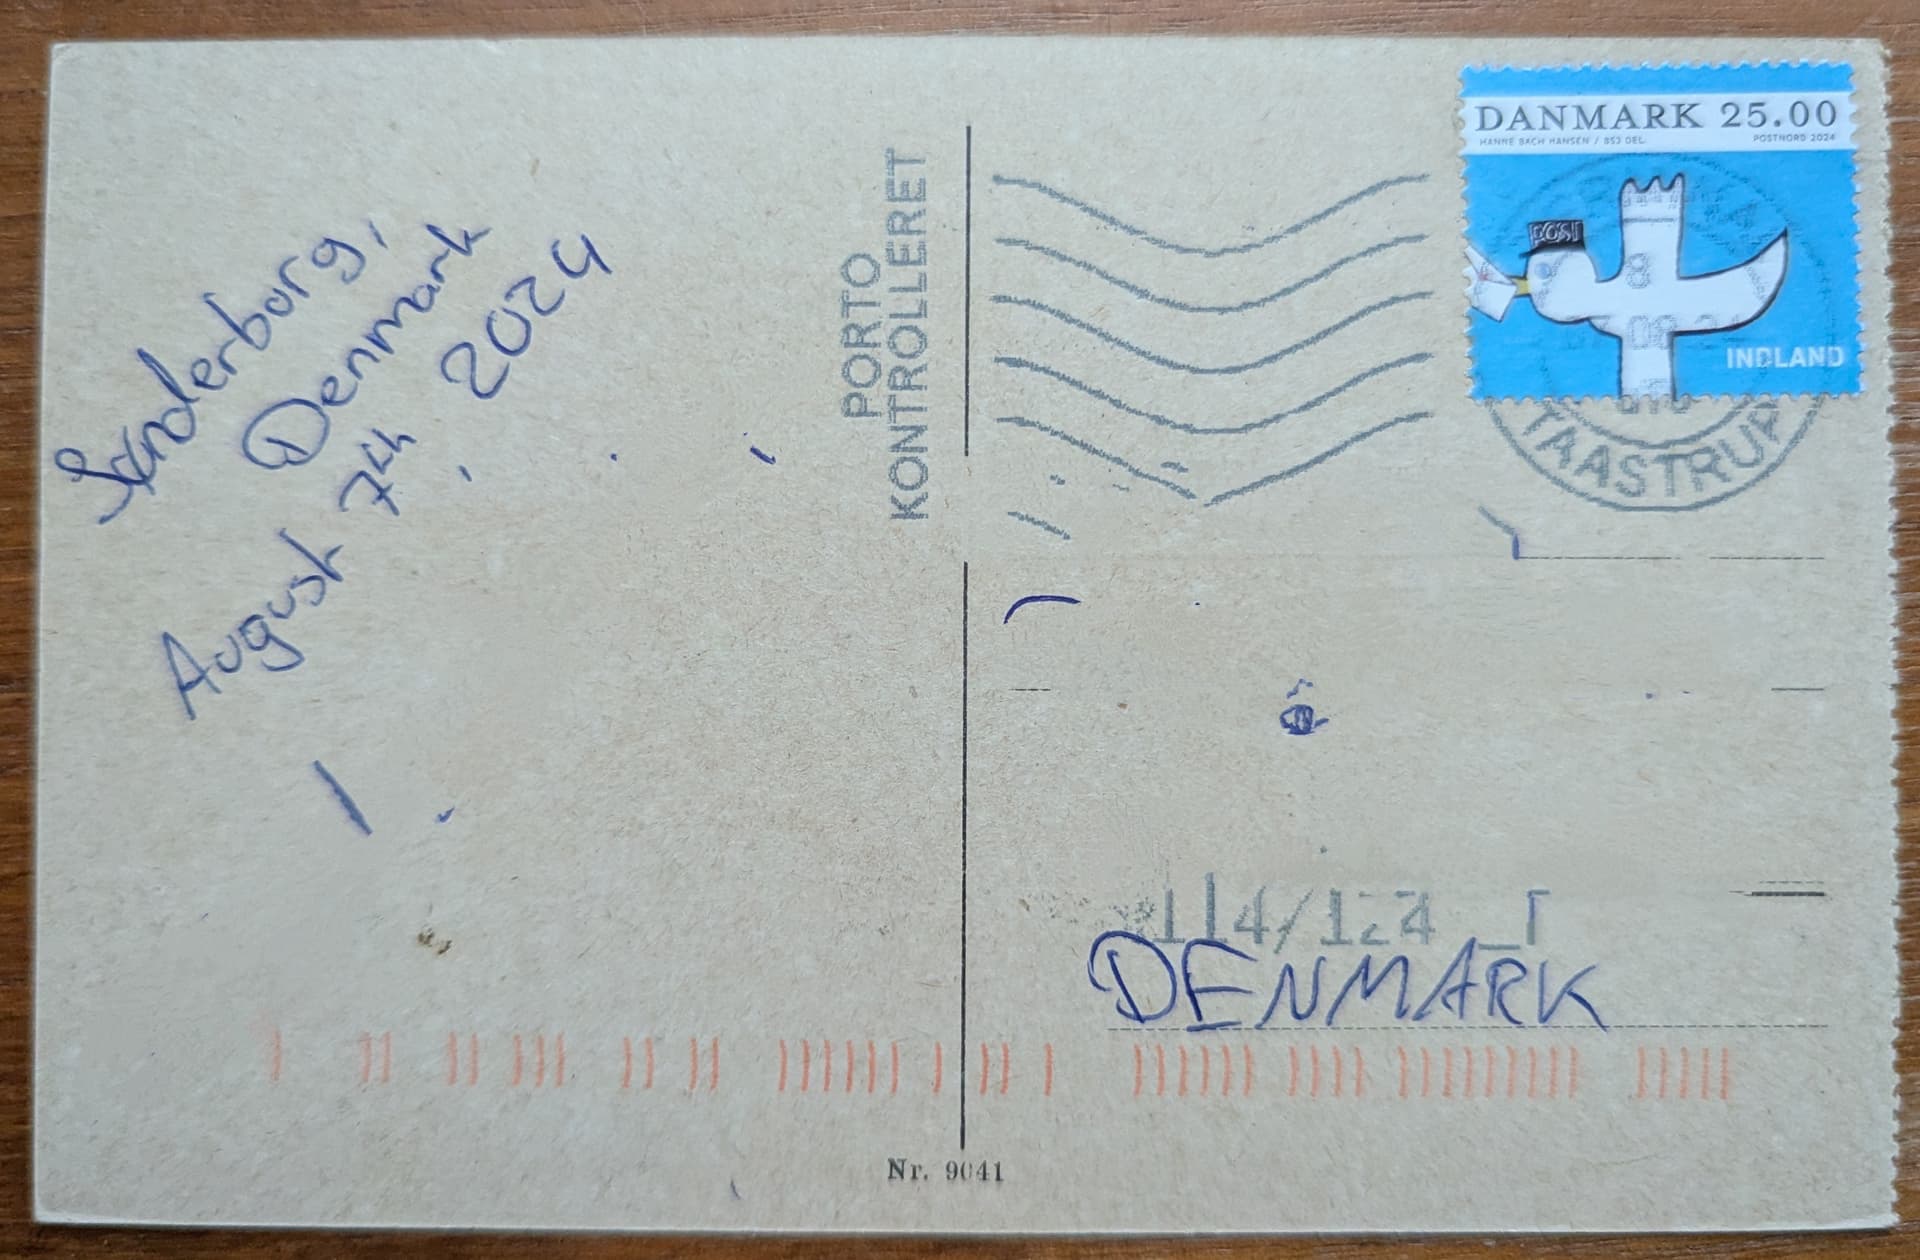 Sønderborg,
Denmark
August 7th, 2024
PORTO
KONTROLLERET
DANMARK 25.00
HANNE BACH HANSEN / 853 DEL.
POSTNORD 2024
POST
INDLAND
TAASTRUP
DENMARK
Nr. 9041